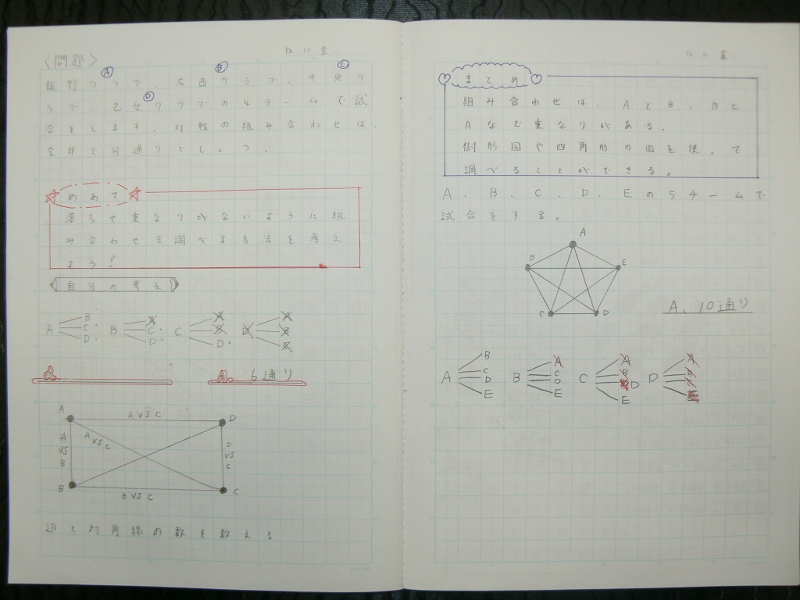 〈問題〉
A B C
クラブ、広西クラブ、中央ク
D
ラブ、乙女クラブの4チームで試
合をします。対戦の組み合わせは、
全部で何通りでしょう。
めあて
落ちや重なりがないように組
み合わせを調べる方法を考え
よう!
自分の考え
A B C D
B A C D
C A B D
D A B C
6通り
A D B C
A VS C
A VS B
A VS C
D VS C
B VS C
辺と対角線の数を数える
まとめ
組み合わせは、AとB、Bと
Aなど重なりがある。
樹形図や四角形の図を使って
調べることができる。
A、B、C、D、Eの5チームで
試合をする。
A
B E
C D
A、10通り
A B C D E
B A C D E
C A B D E
D A